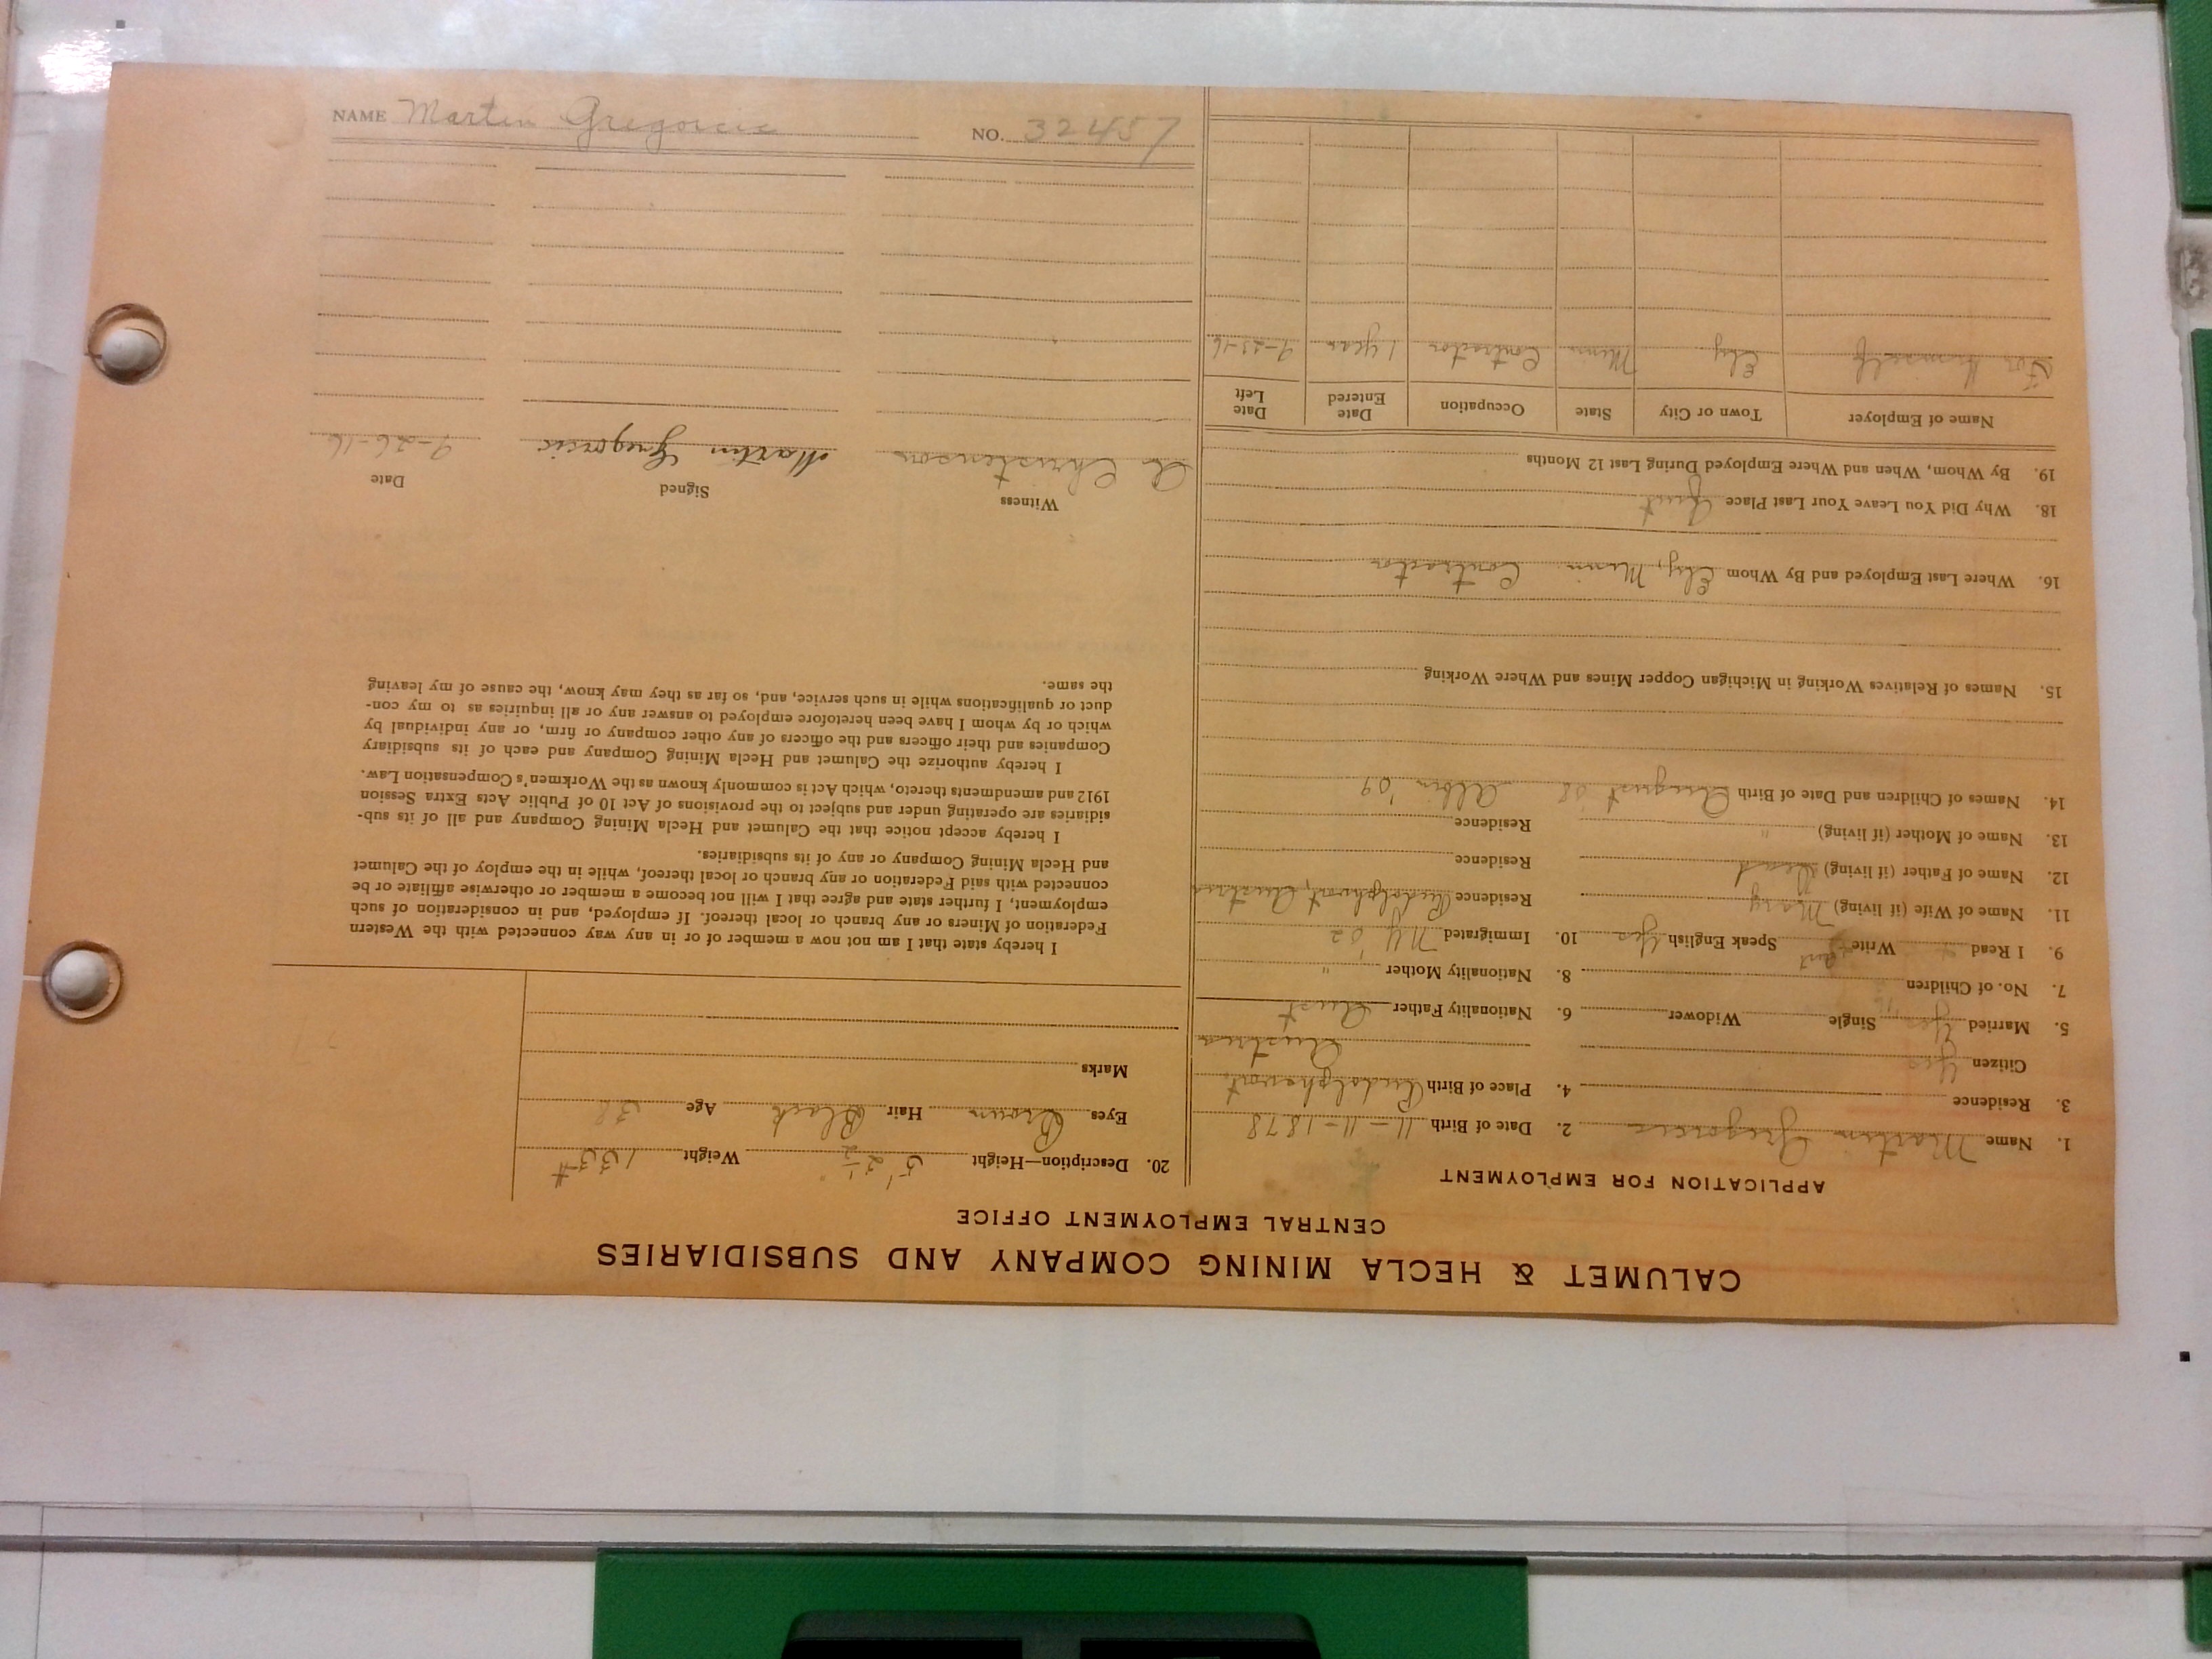 CALUMET & HECLA MINING COMPANY AND SUBSIDIARIES
CENTRAL EMPLOYMENT OFFICE
APPLICATION FOR EMPLOYMENT
1. Name Martin Gregorcic 2. Date of Birth 11-11-1878
3. Residence 4. Place of Birth
Citizen Yes Austria
5. Married Yes Single Widower 6. Nationality Father Aust
7. No. of Children 8. Nationality Mother "
9. I Read Write Speak English Yes 10. Immigrated NY '02
11. Name of Wife (if living) Mary Residence Austria
12. Name of Father (if living) Dead Residence
13. Name of Mother (if living) " Residence
14. Names of Children and Date of Birth August '08 Albin '09
15. Names of Relatives Working in Michigan Copper Mines and Where Working
16. Where Last Employed and By Whom Ely, Minn Contractor
18. Why Did You Leave Your Last Place Quit
19. By Whom, When and Where Employed During Last 12 Months
Name of Employer Town or City State Occupation Date Entered Date Left
For Himself Ely Minn Contractor 1 year 9-23-16
20. Description—Height 5' 2½ Weight 133#
Eyes Brown Hair Black Age 38
Marks
I hereby state that I am not now a member of or in any way connected with the Western
Federation of Miners or any branch or local thereof. If employed, and in consideration of such
employment, I further state and agree that I will not become a member or otherwise affiliate or be
connected with said Federation or any branch or local thereof, while in the employ of the Calumet
and Hecla Mining Company or any of its subsidiaries.
I hereby accept notice that the Calumet and Hecla Mining Company and all of its sub-
sidiaries are operating under and subject to the provisions of Act 10 of Public Acts Extra Session
1912 and amendments thereto, which Act is commonly known as the Workmen's Compensation Law.
I hereby authorize the Calumet and Hecla Mining Company and each of its subsidiary
Companies and their officers and the officers of any other company or firm, or any individual by
which or by whom I have been heretofore employed to answer any or all inquiries as to my con-
duct or qualifications while in such service, and, so far as they may know, the cause of my leaving
the same.
Witness Signed Date
A Christenson Martin Gregorcic 9-26-16
NAME Martin Gregorcic NO. 32457